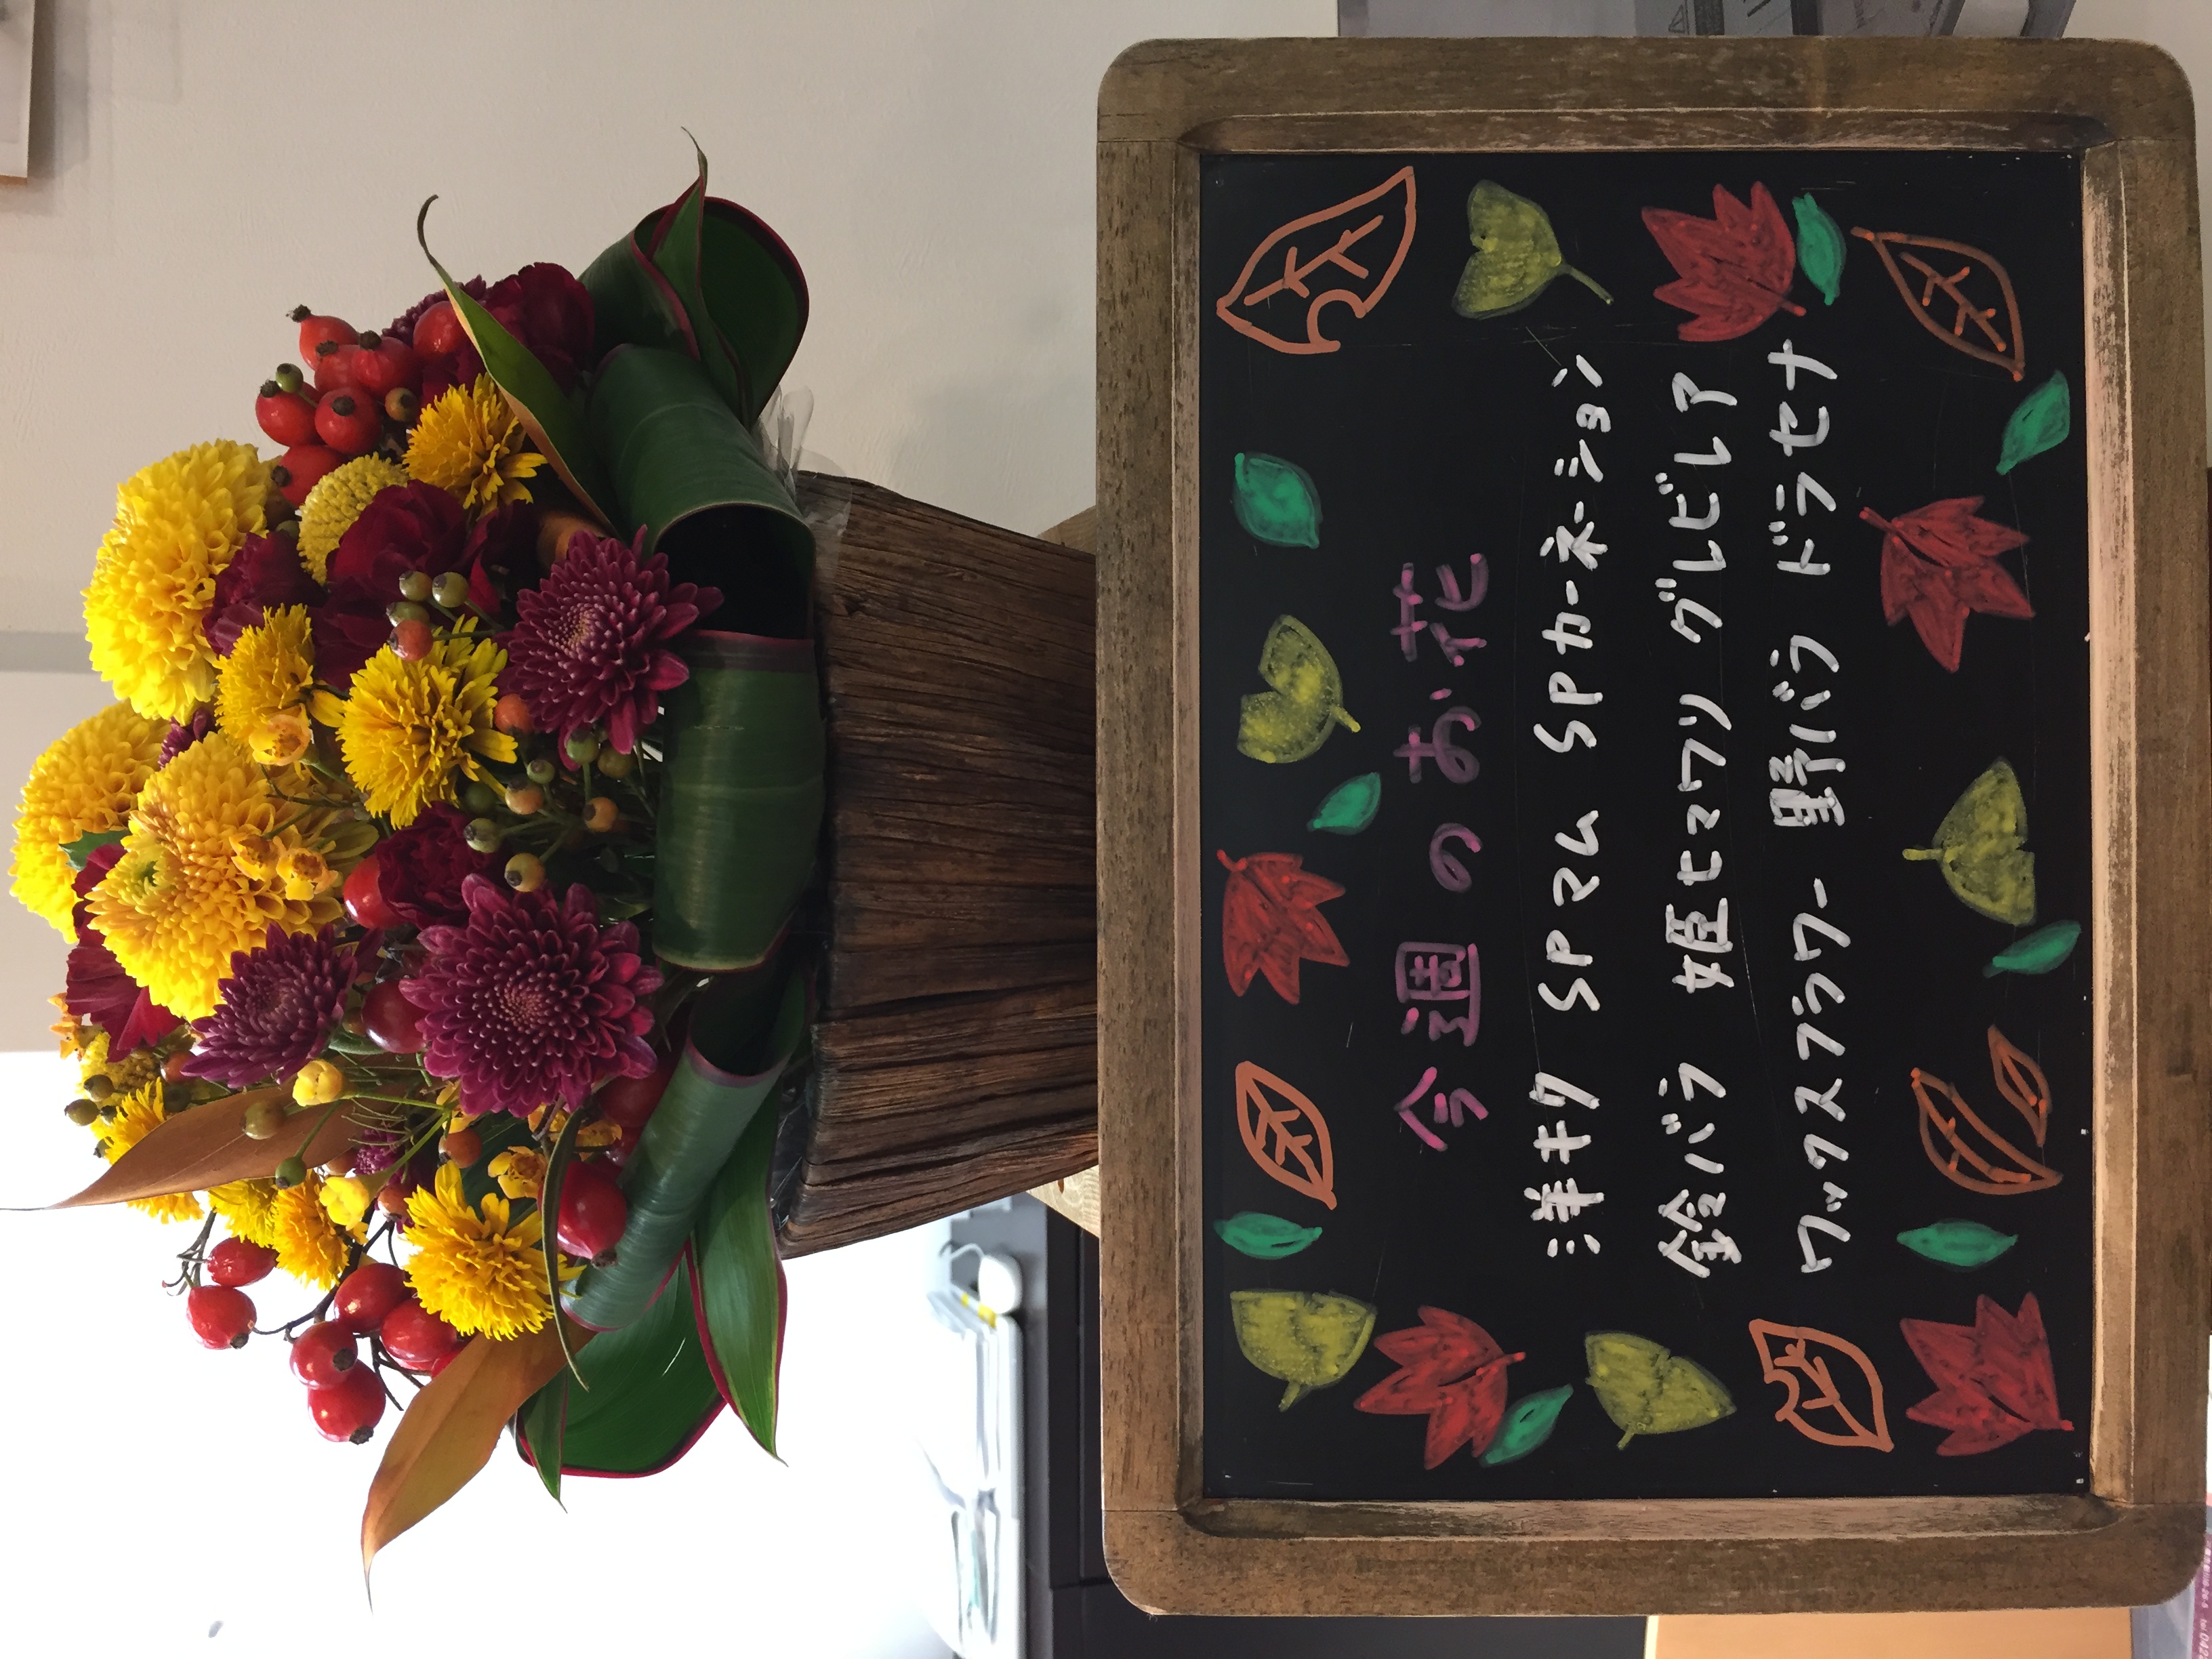 今週のお花
洋キク SPマム SPカーネーション
鈴バラ 姫ヒマワリ グレビレア
ワックスフラワー 野バラ ドラセナ